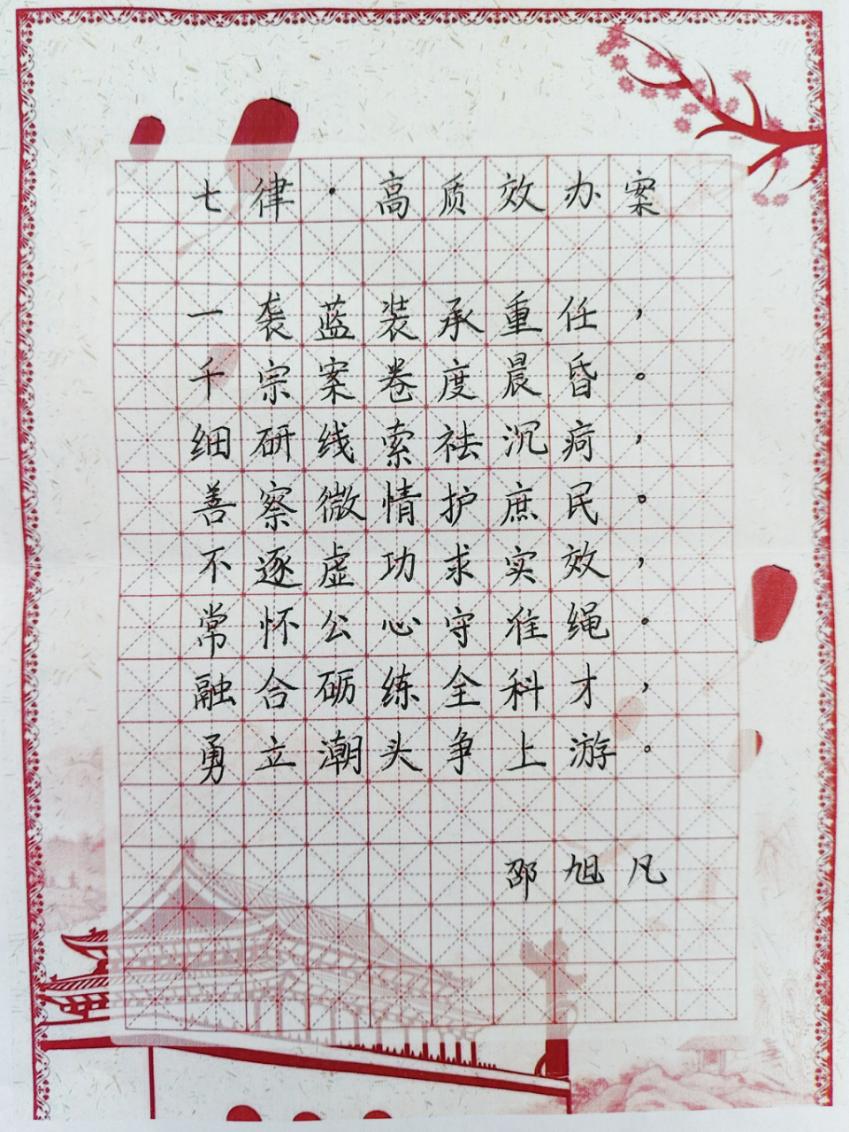 七律·高质效办案
一袭蓝装承重任，
千宗案卷度晨昏。
细研线索祛沉疴，
善察微情护庶民。
不逐虚功求实效，
常怀公心守准绳。
融合砺练全科才，
勇立潮头争上游。
邵旭凡